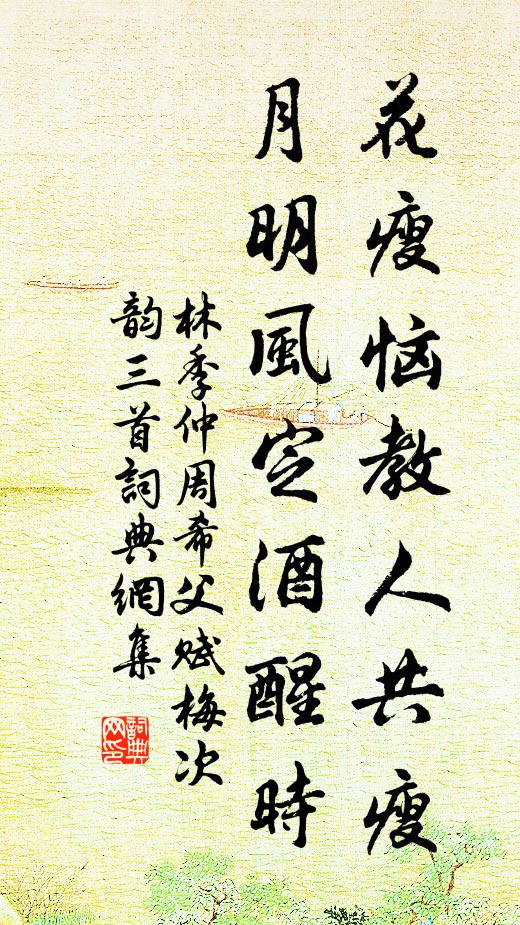 花瘦恼教人共瘦
月明風定酒醒時
林季仲周希父赋梅次
韵三首詞典網集
詞典网印